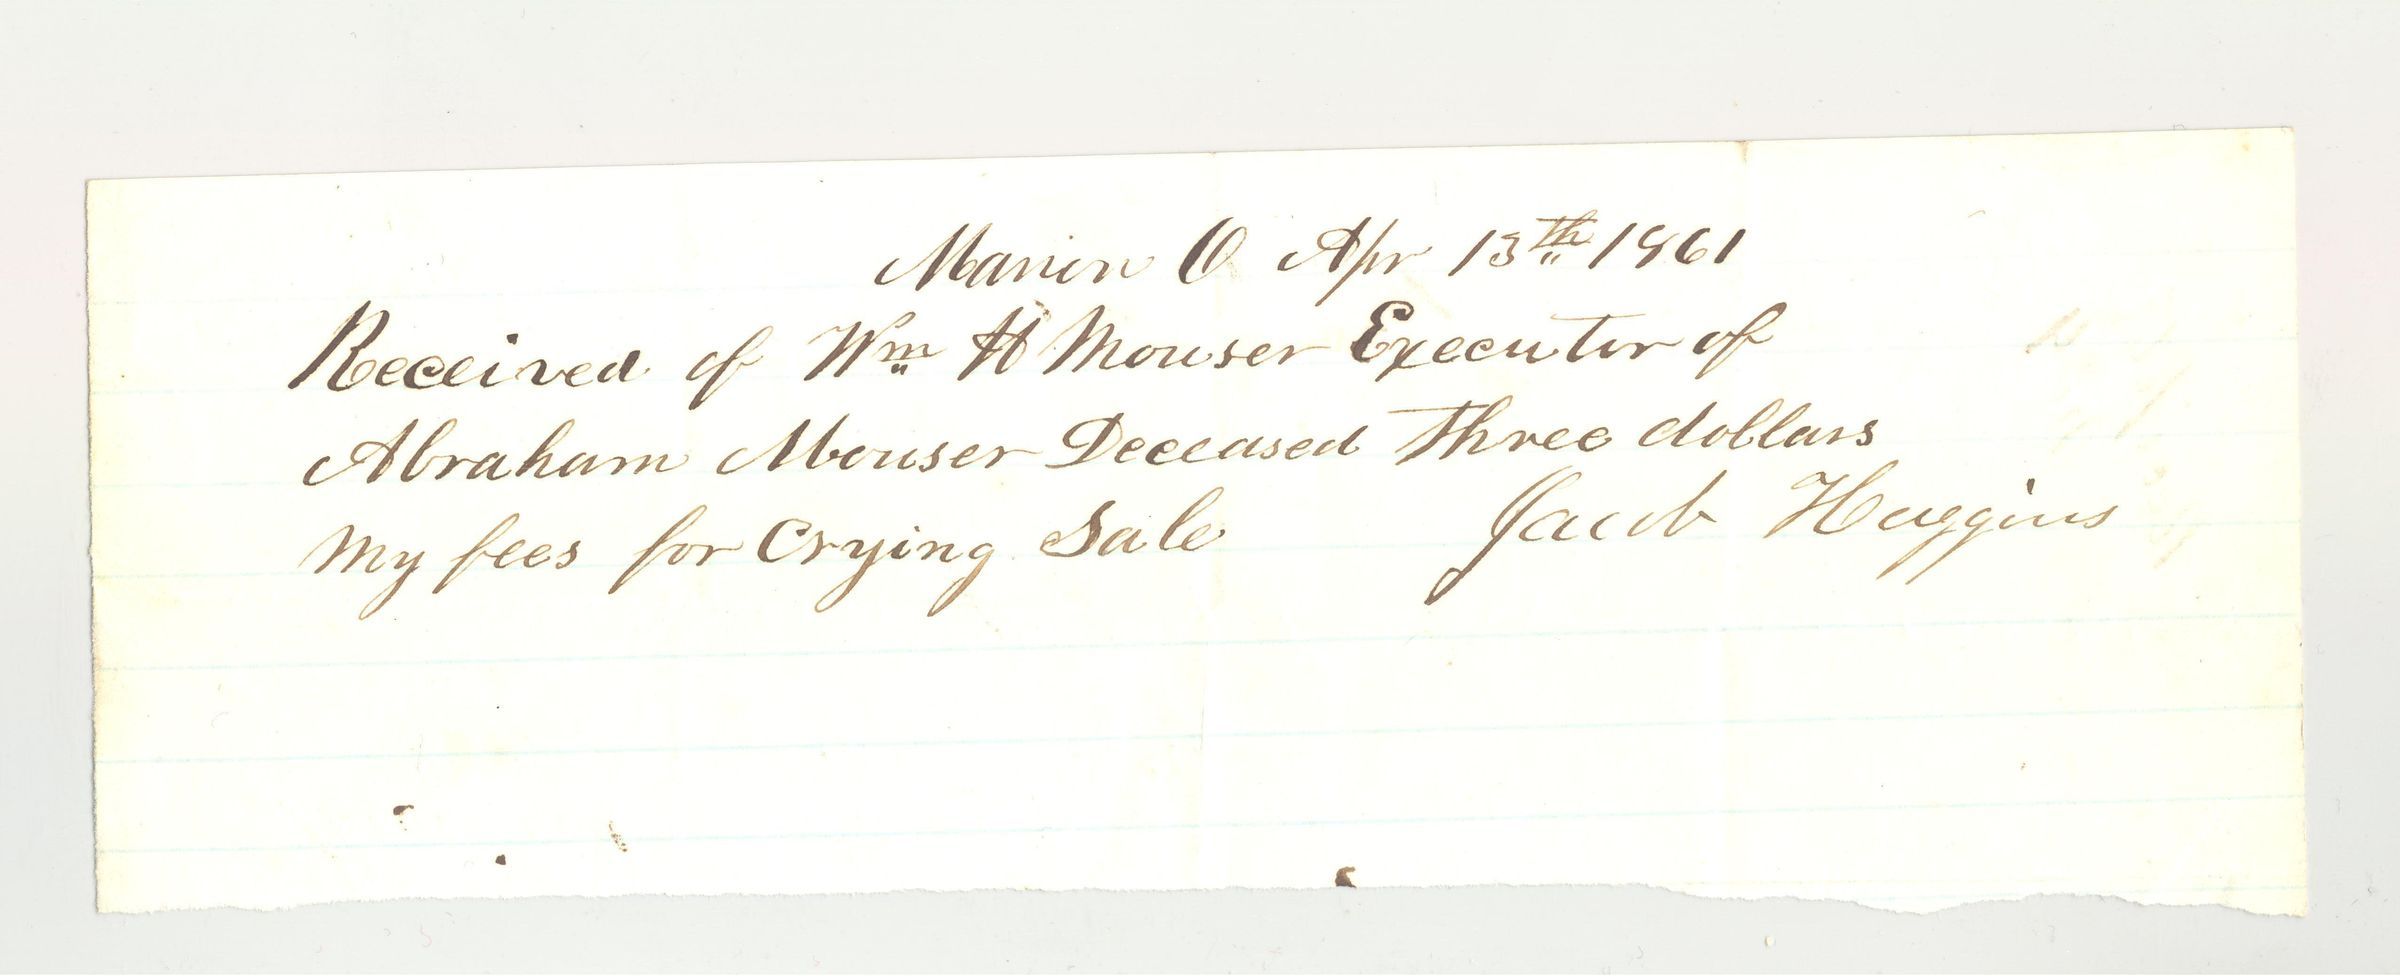 Marion O Apr 13th 1861
Received of Wm H Mouser Executor of
Abraham Mouser Deceased Three dollars
My fees for Crying Sale Jacob Huggins